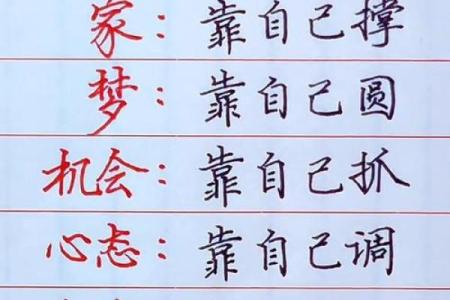 家：靠自己撑
梦：靠自己圆
机会：靠自己抓
心态：靠自己调